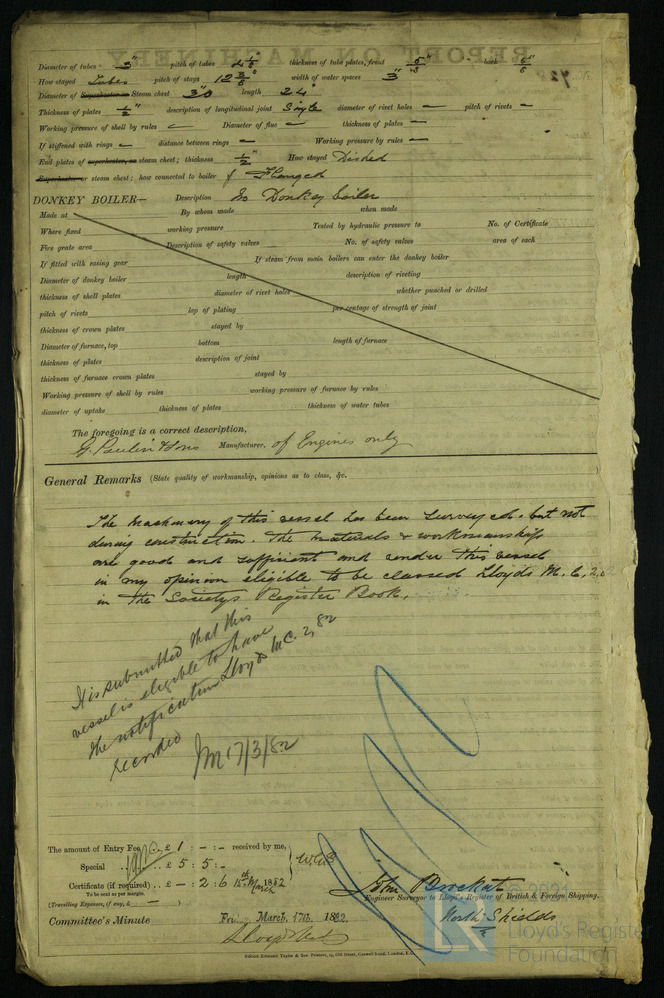 REPORT ON MACHINERY
Diameter of tubes 3" pitch of tubes thickness of tube plates, front back
How stayed Tubes pitch of stays width of water spaces 3"
Diameter of Superheater or Steam chest 3"0 length 24"
Thickness of plates 1/2" description of longitudinal joint Single diameter of rivet holes — pitch of rivets —
Working pressure of shell by rules — Diameter of flue — thickness of plates —
If stiffened with rings — distance between rings — Working pressure by rules —
End plates of superheater, or steam chest; thickness 1/2" How stayed Dished
Superheater or steam chest; how connected to boiler Flanged
DONKEY BOILER— Description No Donkey boiler
Made at By whom made when made
Where fixed working pressure Tested by hydraulic pressure to No. of Certificate
Fire grate area Description of safety valves No. of safety valves area of each
If fitted with easing gear If steam from main boilers can enter the donkey boiler
Diameter of donkey boiler length description of riveting
thickness of shell plates diameter of rivet holes whether punched or drilled
pitch of rivets lap of plating per centage of strength of joint
thickness of crown plates stayed by
Diameter of furnace, top bottom length of furnace
thickness of plates description of joint
thickness of furnace crown plates stayed by
Working pressure of shell by rules working pressure of furnace by rules
diameter of uptake thickness of plates thickness of water tubes
The foregoing is a correct description,
Manufacturer. of Engines only
General Remarks (State quality of workmanship, opinions as to class, &c.
The machinery of this vessel has been surveyed. but not
during construction. The materials & workmanship
are good and sufficient and render this vessel
in my opinion eligible to be classed Lloyds M. C. 2,82
in the Societys Register Book.
It is submitted that this
vessel is eligible to have
the notification Lloyds MC. 2,82
recorded
17/3/82
The amount of Entry Fee .. £ 1 : - : - received by me,
Special .. £ 5 : 5 : -
Certificate (if required) .. £ - : 2 : 6 15th March 1882
To be sent as per margin.
(Travelling Expenses, if any, £ — )
John Brockat
Engineer Surveyor to Lloyd's Register of British & Foreign Shipping.
North Shields
Committee's Minute Friday March, 17th. 1882.
© 2021
Lloyd's Register
Foundation